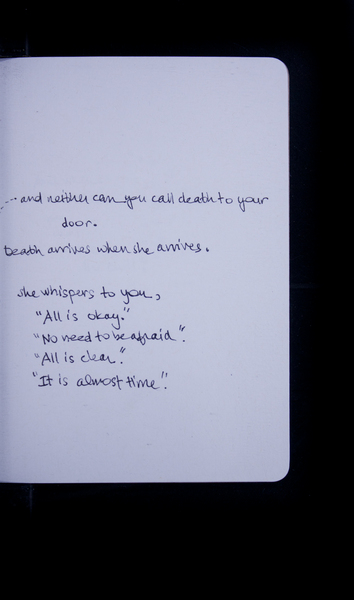 ...and neither can you call death to your
door.
Death arrives when she arrives.
she whispers to you,
"All is okay."
"No need to be afraid".
"All is clear".
"It is almost time".